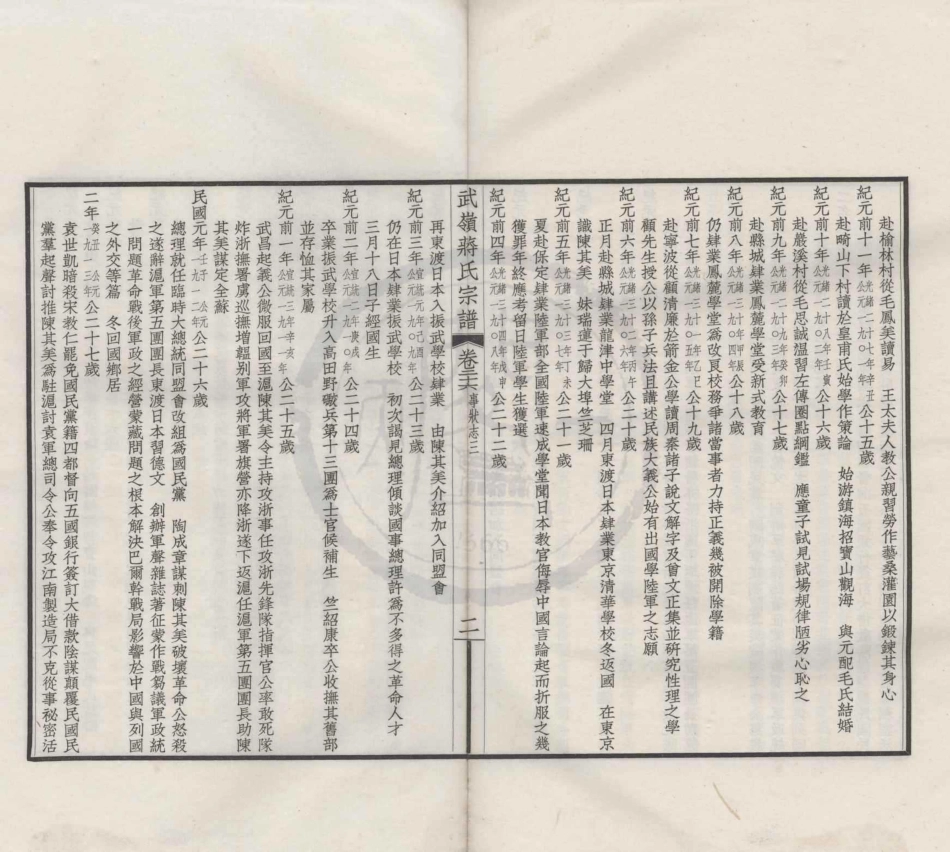 赴榆林村從毛鳳美讀易　王太夫人教公親習勞作藝桑灌園以鍛鍊其身心
紀元前十一年光緒二十七年辛丑公元一九〇一年公十五歲
赴畸山下村讀於皇甫氏始學作策論　始游鎮海招寶山觀海　與元配毛氏結婚
紀元前十年光緒二十八年壬寅公元一九〇二年公十六歲
赴巖溪村從毛思誠溫習左傳圈點綱鑑　應童子試見試場規律陋劣心恥之
紀元前九年光緒二十九年癸卯公元一九〇三年公十七歲
赴縣城肄業鳳麓學堂受新式教育
紀元前八年光緒三十年甲辰公元一九〇四年公十八歲
仍肄業鳳麓學堂爲改良校務爭諸當事者力持正義幾被開除學籍
紀元前七年光緒三十一年乙巳公元一九〇五年公十九歲
赴寧波從顧清廉於箭金公學讀周秦諸子說文解字及曾文正集並硏究性理之學
顧先生授公以孫子兵法且講述民族大義公始有出國學陸軍之志願
紀元前六年光緒三十二年丙午公元一九〇六年公二十歲
正月赴縣城肄業龍津中學堂　四月東渡日本肄業東京清華學校冬返國　在東京
識陳其美　妹瑞蓮于歸大埠竺芝珊
紀元前五年光緒三十三年丁未公元一九〇七年公二十一歲
夏赴保定肄業陸軍部全國陸軍速成學堂聞日本教官侮辱中國言論起而折服之幾
獲罪年終應考留日陸軍學生獲選
紀元前四年光緒三十四年戊申公元一九〇八年公二十二歲
武嶺蔣氏宗譜　卷三十六　事狀志三　二
再東渡日本入振武學校肄業　由陳其美介紹加入同盟會
紀元前三年宣統元年己酉公元一九〇九年公二十三歲
仍在日本肄業振武學校　初次謁見總理傾談國事總理許爲不多得之革命人才
三月十八日子經國生
紀元前二年宣統二年庚戌公元一九一〇年公二十四歲
卒業振武學校升入高田野礮兵第十三團爲士官候補生　竺紹康卒公收撫其舊部
並存恤其家屬
紀元前一年宣統三年辛亥公元一九一一年公二十五歲
武昌起義公微服回國至滬陳其美令主持攻浙事任攻浙先鋒隊指揮官公率敢死隊
炸浙撫署虜巡撫增韞别軍攻將軍署旗營亦降浙遂下返滬任滬軍第五團團長助陳
其美謀定全蘇
民國元年壬子公元一九一二年公二十六歲
總理就任臨時大總統同盟會改組爲國民黨　陶成章謀刺陳其美破壞革命公怒殺
之遂辭滬軍第五團團長東渡日本習德文　創辦軍聲雜誌著征蒙作戰芻議軍政統
一問題革命戰後軍政之經營蒙藏問題之根本解決巴爾幹戰局影響於中國與列國
之外交等篇　冬回國鄉居
二年癸丑公元一九一三年公二十七歲
袁世凱暗殺宋教仁罷免國民黨籍四都督向五國銀行簽訂大借款陰謀顛覆民國民
黨羣起聲討推陳其美爲駐滬討袁軍總司令公奉令攻江南製造局不克從事秘密活